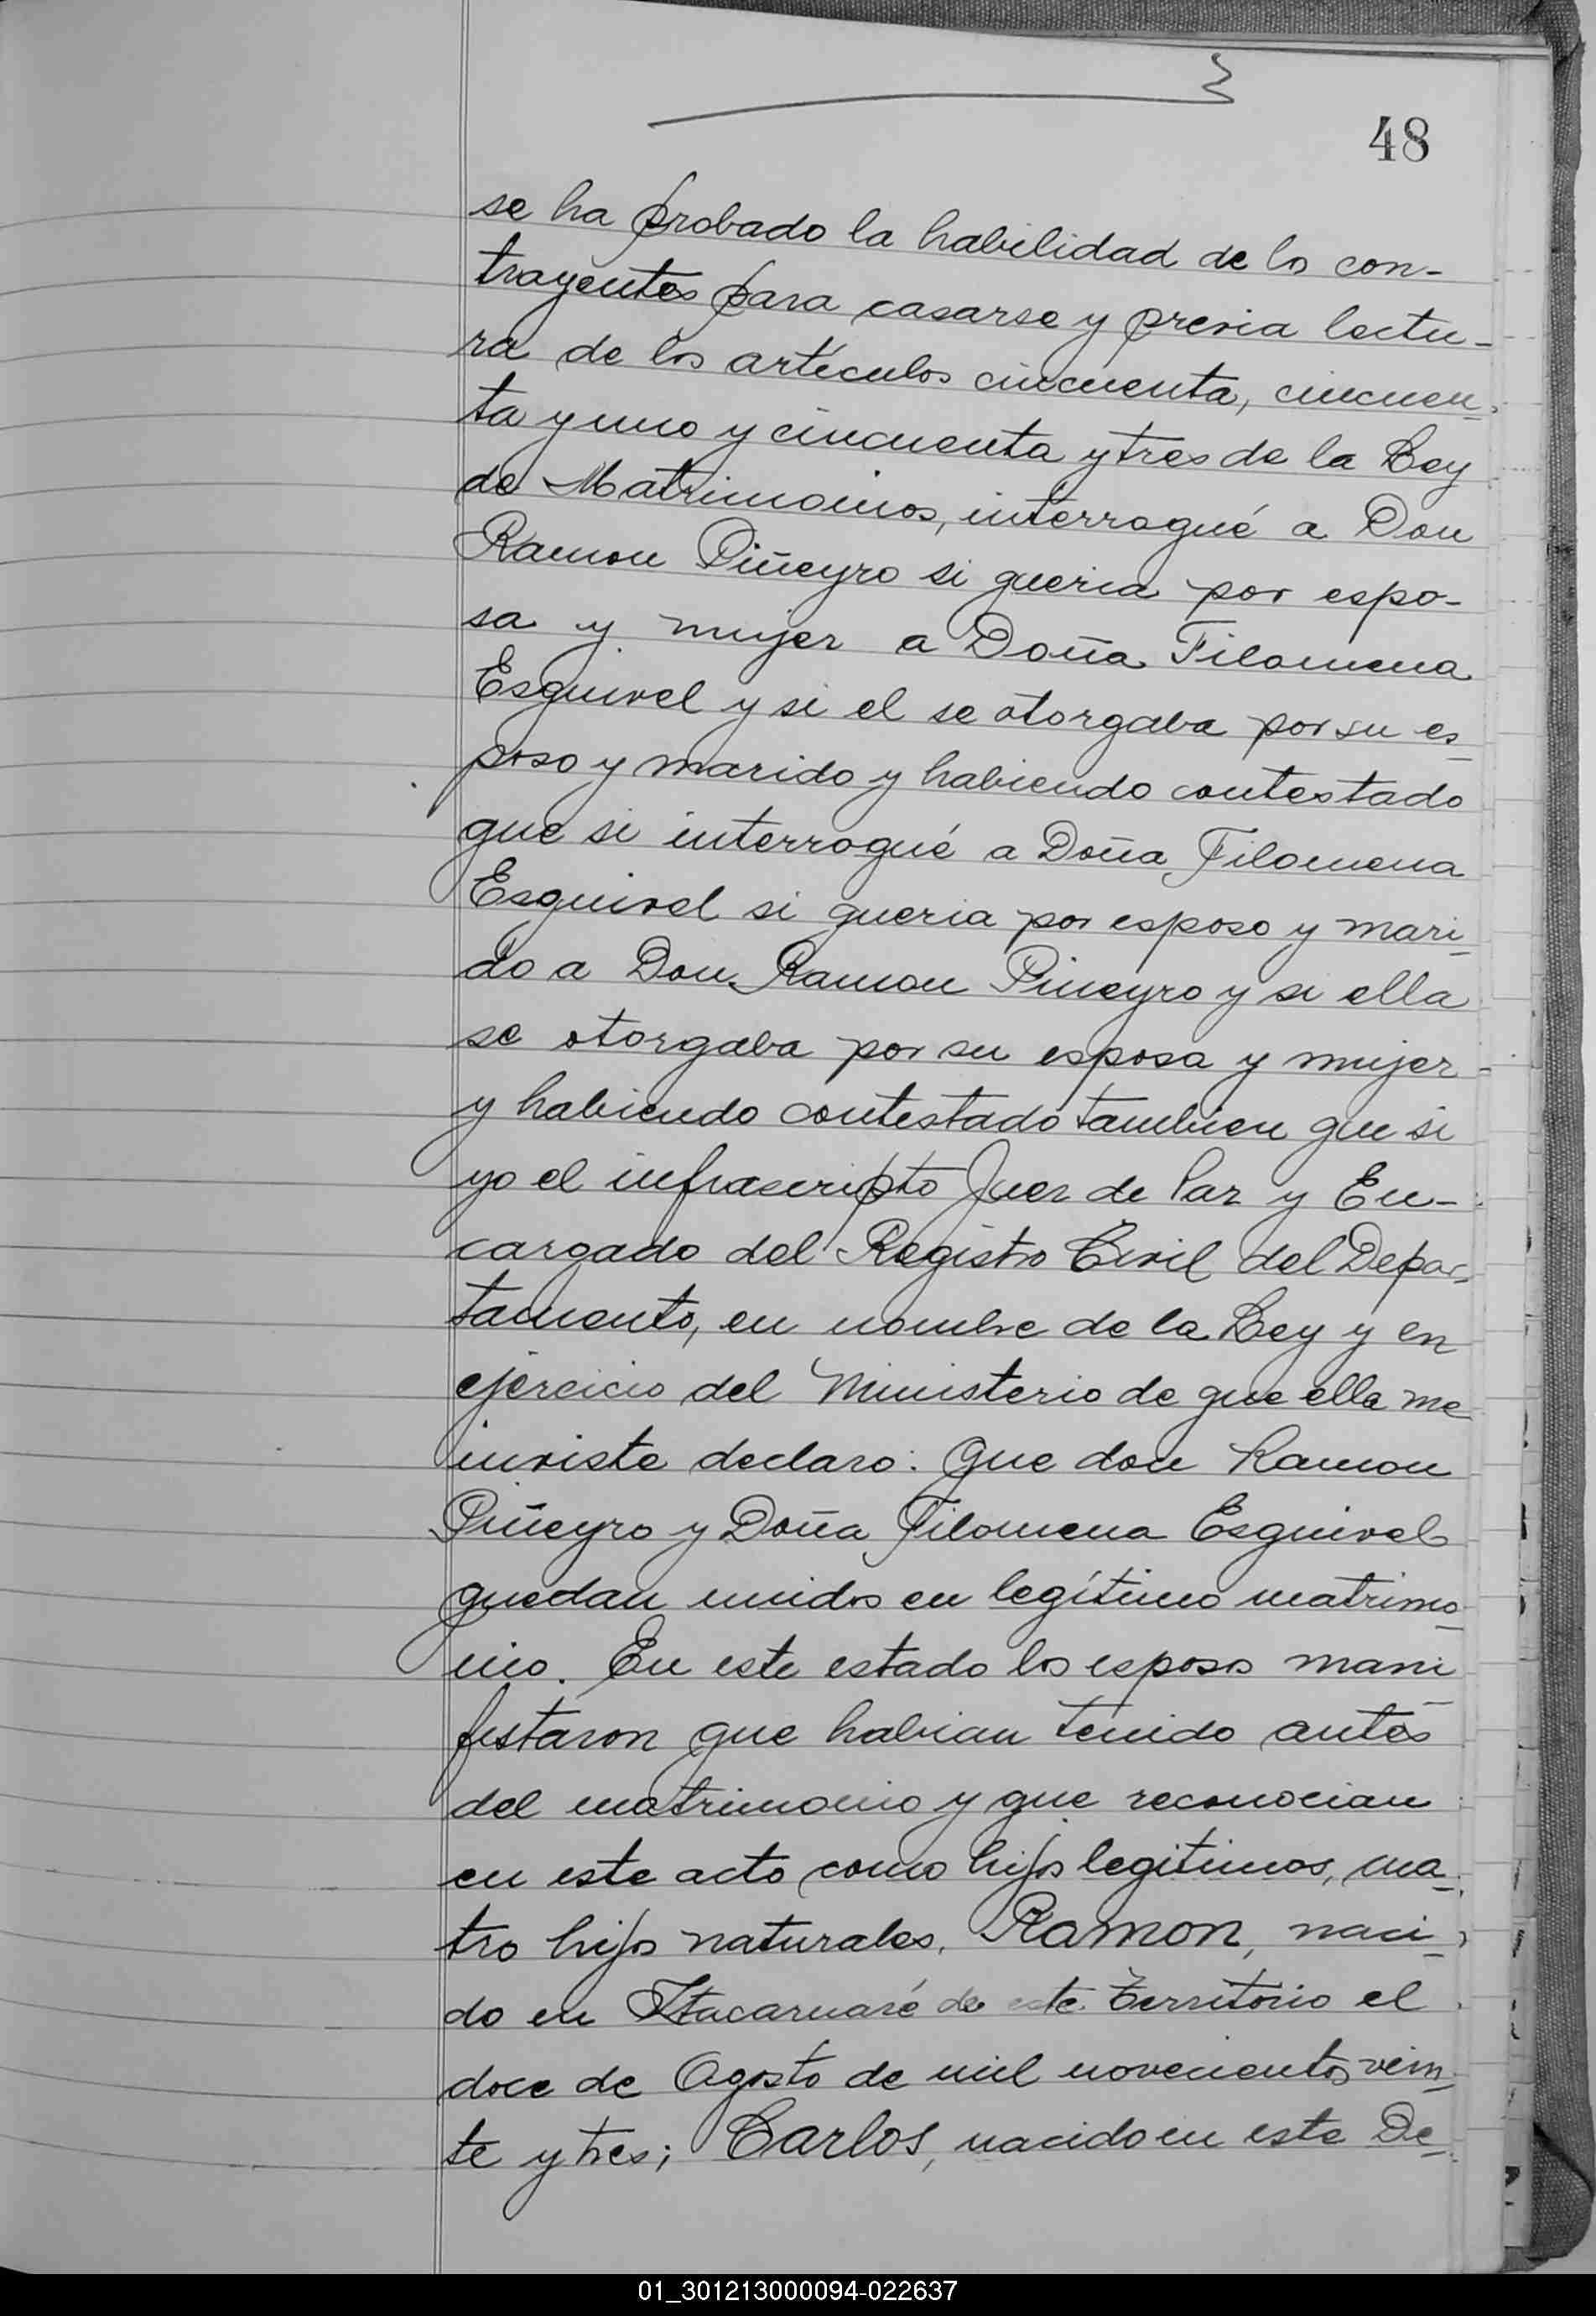 48
se ha probado la habilidad de los con-
trayentes para casarse y previa lectu-
ra de los artículos cincuenta, cincuen-
ta y uno y cincuenta y tres de la Ley
de Matrimonios, interrogué a Don
Ramon Piñeyro si queria por espo-
sa y mujer a Doña Filomena
Esquivel y si el se otorgaba por su es-
poso y marido y habiendo contestado
que si interrogué a Doña Filomena
Esquivel si queria por esposo y mari-
do a Don Ramon Piñeyro y si ella
se otorgaba por su esposa y mujer
y habiendo contestado tambien que si
yo el infrascripto Juez de Paz y En-
cargado del Registro Civil del Depar-
tamento, en nombre de la Ley y en
ejercicio del Ministerio de que ella me
inviste declaro: Que don Ramon
Piñeyro y Doña Filomena Esquivel
quedan unidos en legítimo matrimo-
nio. En este estado los esposos mani-
festaron que habian tenido antes
del matrimonio y que reconocian
en este acto como hijos legitimos, cua-
tro hijos naturales. Ramon, naci-
do en Itacaruaré de este Territorio el
doce de Agosto de mil novecientos vein-
te y tres; Carlos, nacido en este De-
01_301213000094-022637